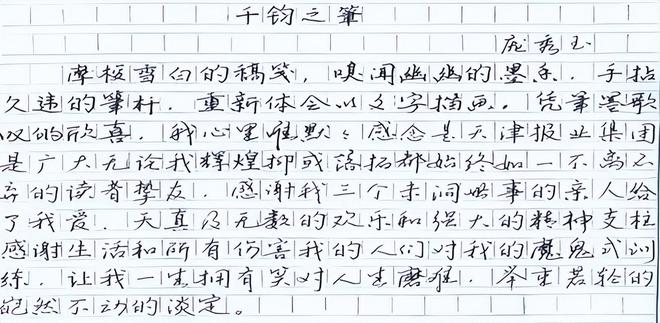 千钧之筆
庞秀玉
摩挲雪白的稿笺，嗅闻幽幽的墨香，手拈
久违的筆杆，重新体会以文字描画，凭筆墨歌
叹的欣喜，我心里唯默：感念是天津报业集团
是广大无论我辉煌抑或落拓都始终如一不离不
弃的读者挚友，感谢我三个未洞世事的亲人给
了我爱、天真及无数的欢乐和强大的精神支柱
感谢生活和所有伤害我的人们对我的魔鬼式训
练，让我一生拥有笑对人生磨难，举重若轻的
岿然不动的淡定。